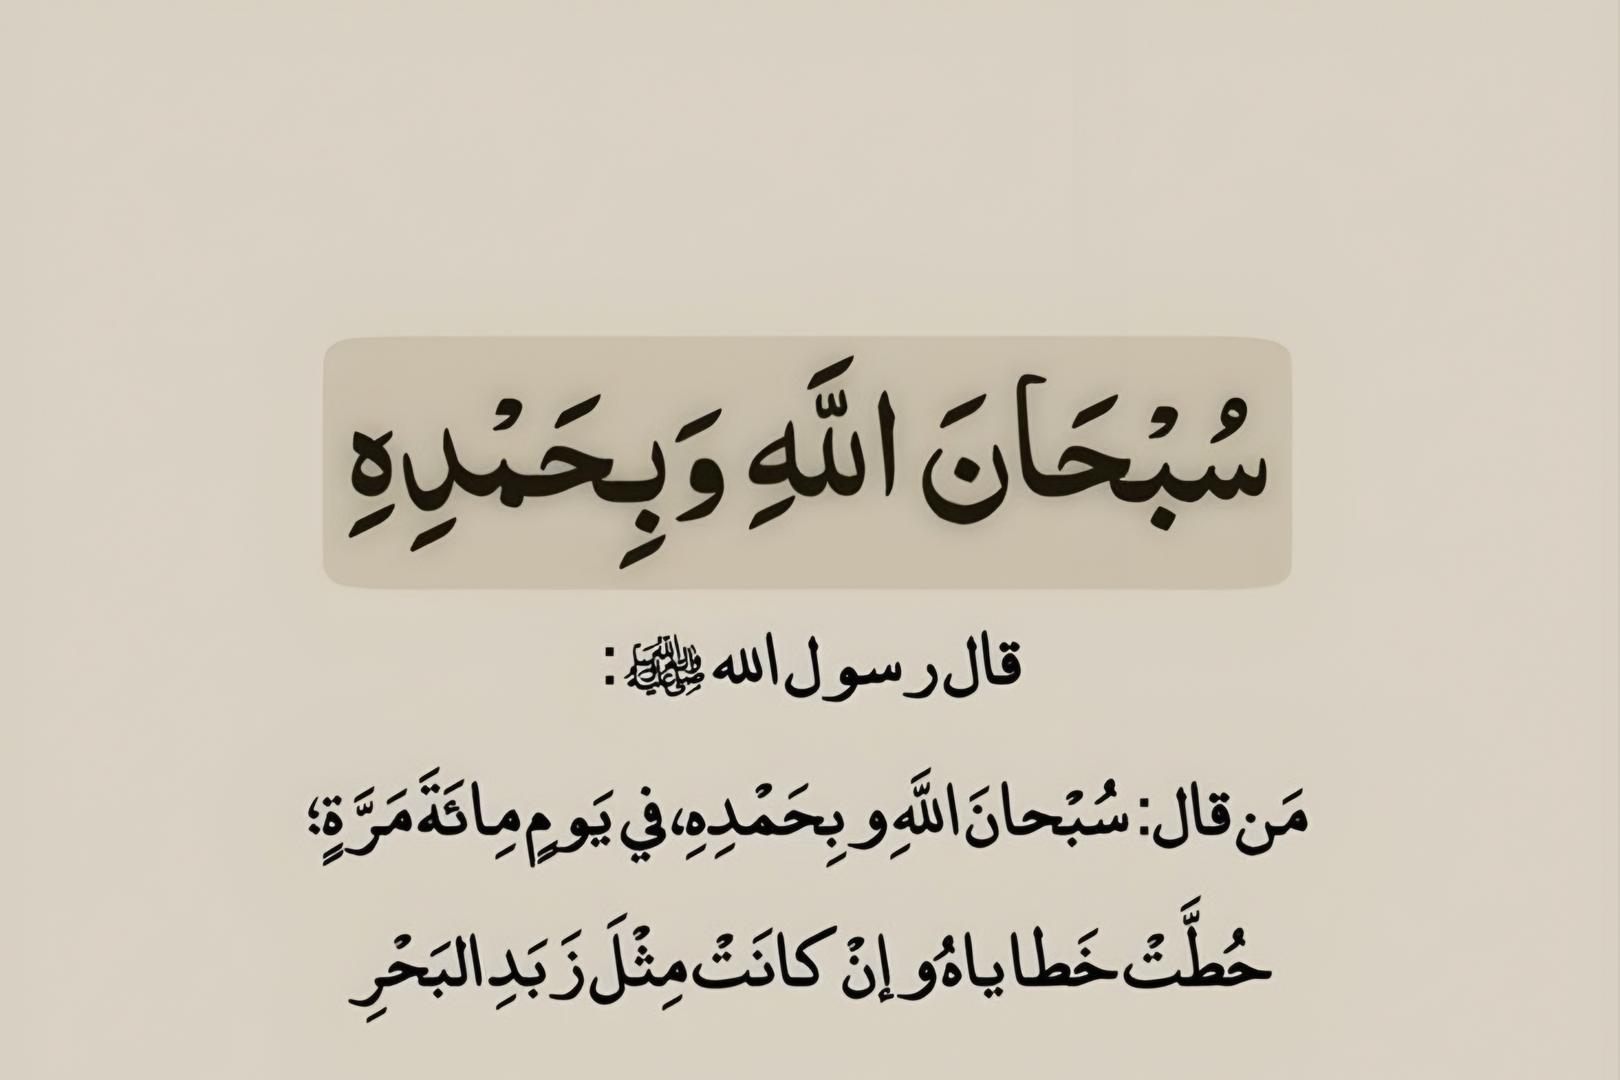 سُبْحَانَ اللَّهِ وَبِحَمْدِهِ
قال رسول الله ﷺ:
مَن قال: سُبْحانَ اللَّهِ وبِحَمْدِهِ، في يَومٍ مِائَةَ مَرَّةٍ؛
حُطَّتْ خَطاياهُ وإنْ كانَتْ مِثْلَ زَبَدِ البَحْرِ